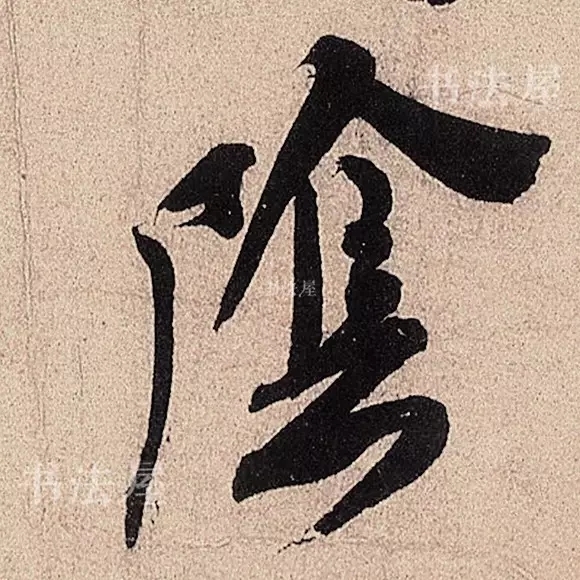 书法屋
陰
书法屋
书法屋